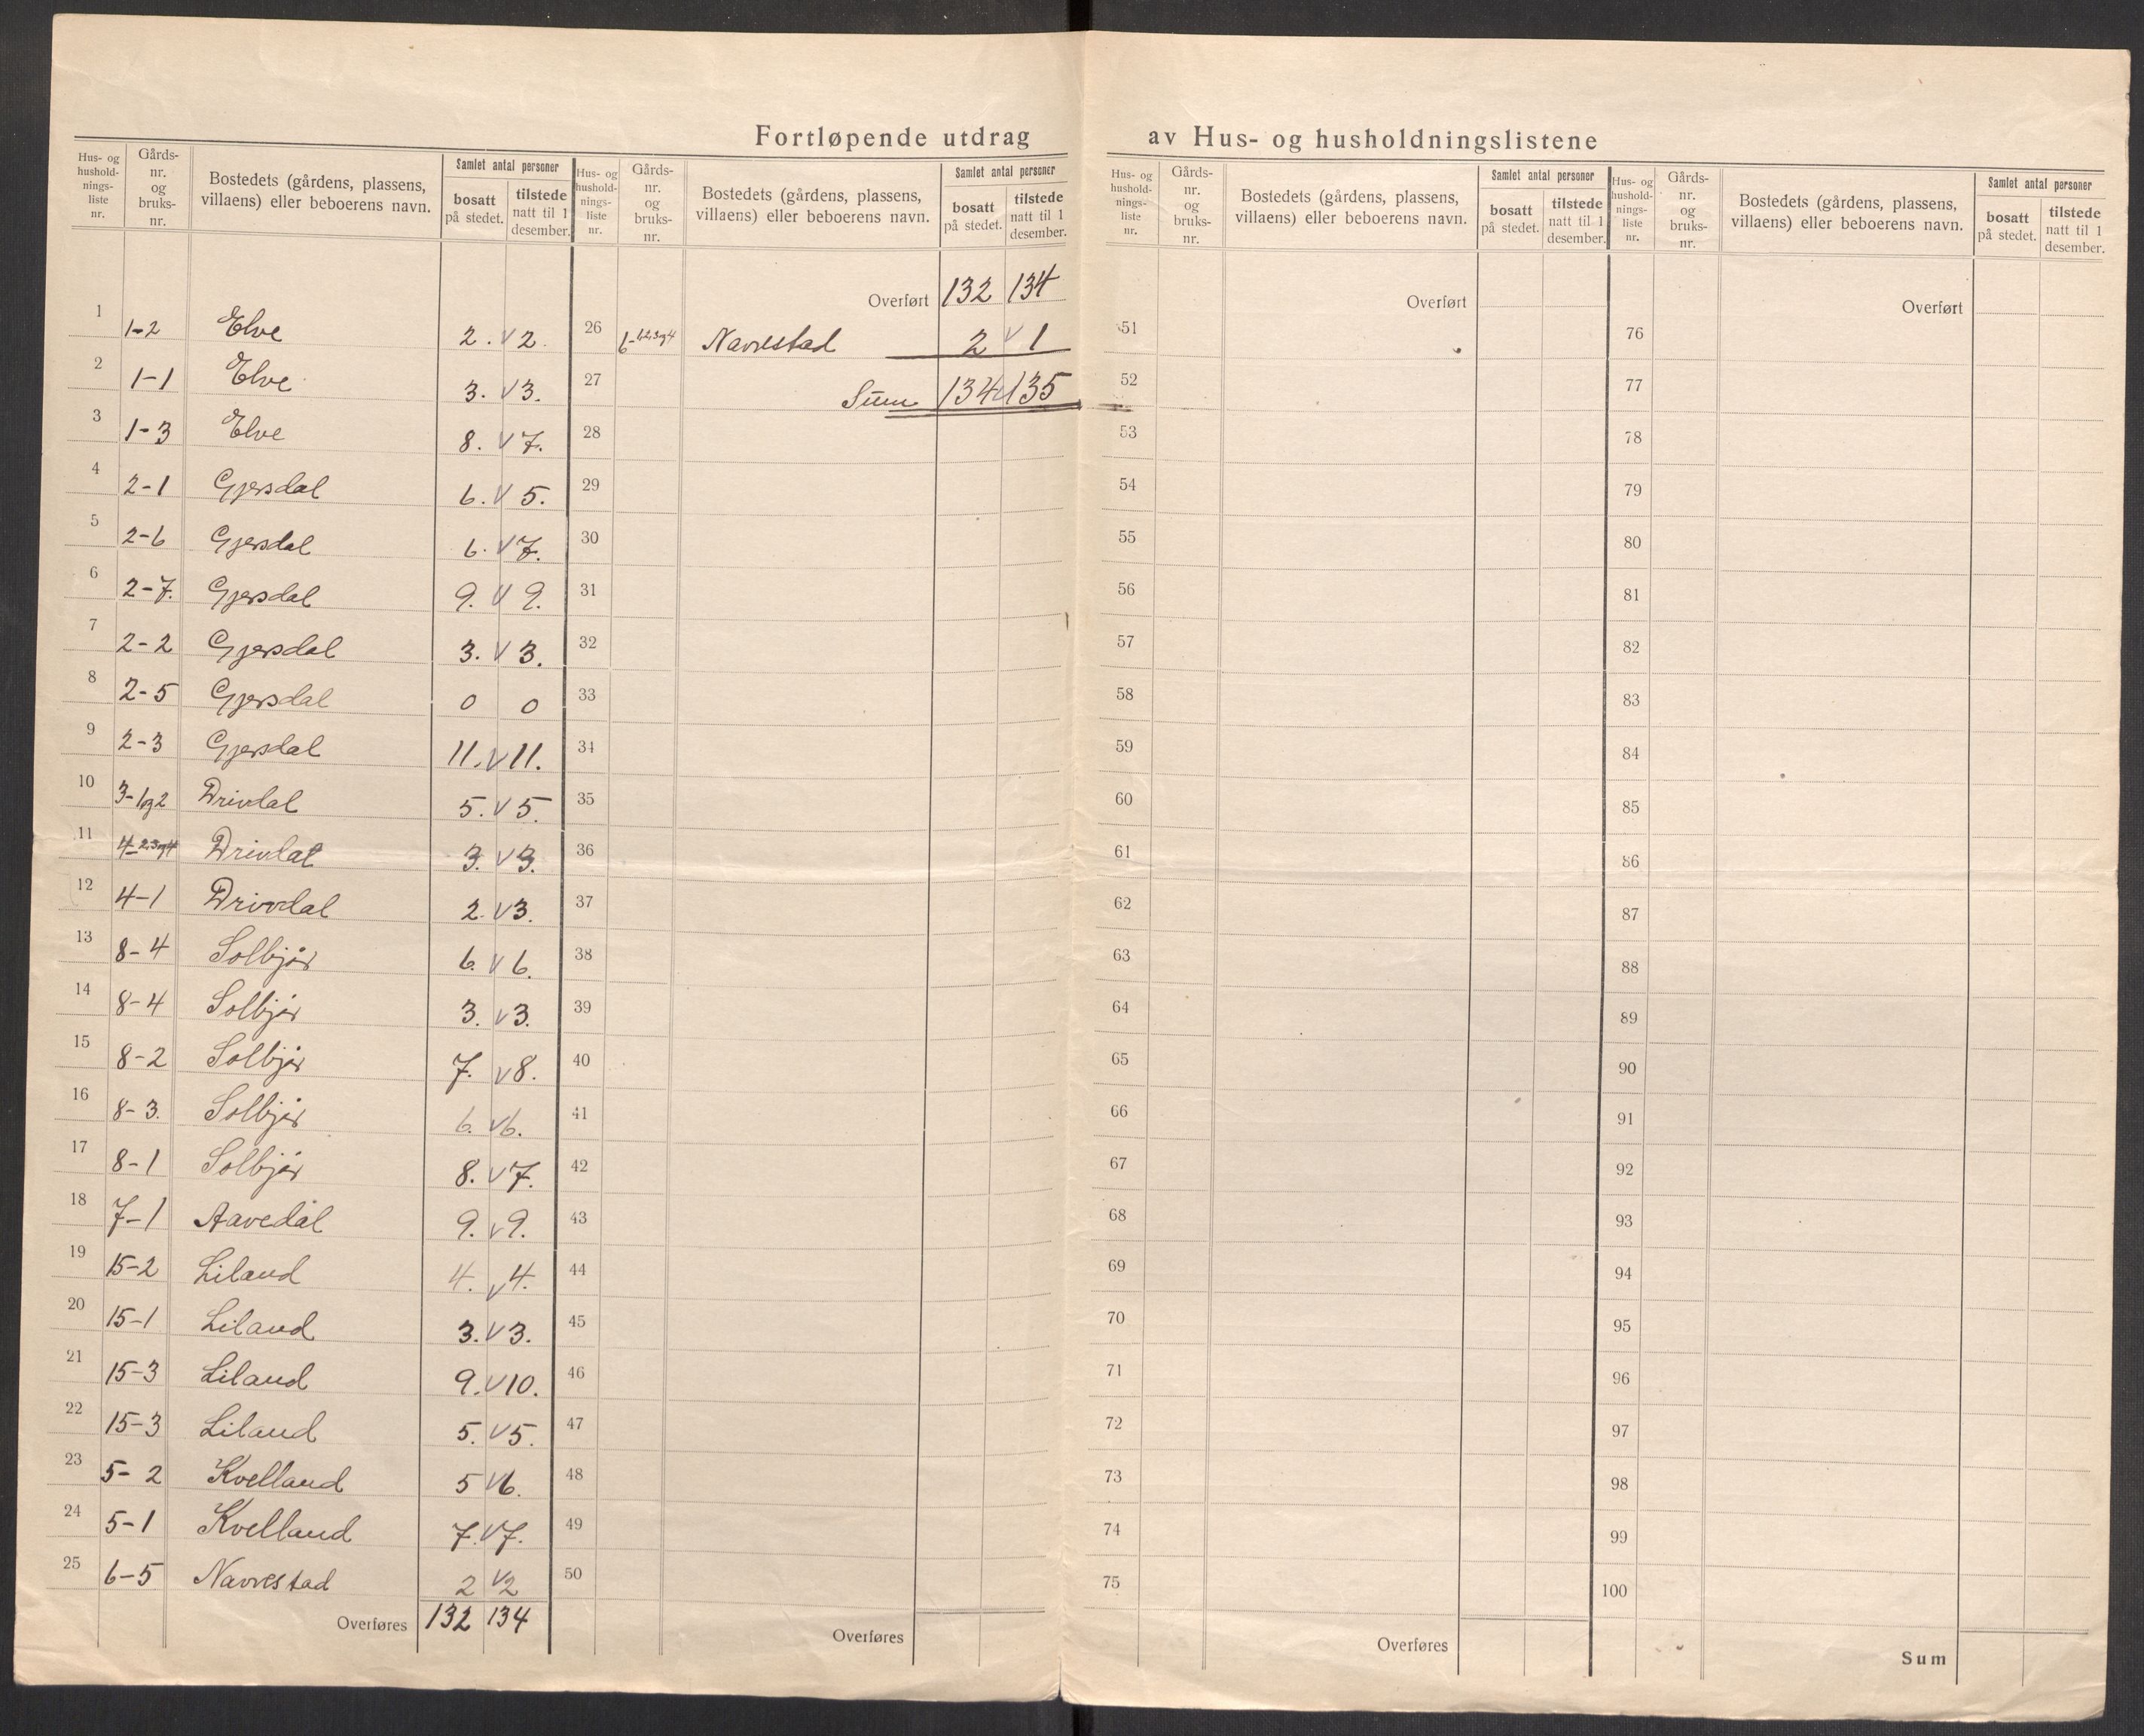 Fortløpende utdrag av Hus- og husholdningslistene
Hus- og hushold-nings-liste nr. | Gårds-nr. og bruks-nr. | Bostedets (gårdens, plassens, villaens) eller beboerens navn. | Samlet antal personer | bosatt på stedet. | tilstede natt til 1 desember.
1 1-2 Elve 2. v 2.
2 1-1 Elve 3. v 3.
3 1-3 Elve 8. v 7.
4 2-1 Gjersdal 6. v 5.
5 2-6 Gjersdal 6. v 7.
6 2-7. Gjersdal 9. v 9.
7 2-2 Gjersdal 3. v 3.
8 2-5 Gjersdal 0 0
9 2-3 Gjersdal 11. v 11.
10 3-1og2 Drivdal 5. v 5.
11 4-2,3og4 Drivdal 3. v 3.
12 4-1 Drivdal 2. v 3.
13 8-4 Solbjør 6. v 6.
14 8-4 Solbjør 3. v 3.
15 8-2 Solbjør 7. v 8.
16 8-3. Solbjør 6. v 6.
17 8-1 Solbjør 8. v 7.
18 7-1 Aavedal 9. v 9.
19 15-2 Liland 4. v 4.
20 15-1 Liland 3. v 3.
21 15-3 Liland 9. v 10.
22 15-3 Liland 5. v 5.
23 5-2 Kvelland 5 v 6.
24 5-1 Kvelland 7. v 7.
25 6-5 Navrestad 2 v 2
Overføres 132 134
Hus- og hushold-nings-liste nr. | Gårds-nr. og bruks-nr. | Bostedets (gårdens, plassens, villaens) eller beboerens navn. | Samlet antal personer | bosatt på stedet. | tilstede natt til 1 desember.
Overført 132 134
26 6-1,2,3og4 Navrestad 2 v 1
27 Sum 134 v 135
28
29
30
31
32
33
34
35
36
37
38
39
40
41
42
43
44
45
46
47
48
49
50
Overføres
Hus- og hushold-nings-liste nr. | Gårds-nr. og bruks-nr. | Bostedets (gårdens, plassens, villaens) eller beboerens navn. | Samlet antal personer | bosatt på stedet. | tilstede natt til 1 desember.
Overført
51
52
53
54
55
56
57
58
59
60
61
62
63
64
65
66
67
68
69
70
71
72
73
74
75
Overføres
Hus- og hushold-nings-liste nr. | Gårds-nr. og bruks-nr. | Bostedets (gårdens, plassens, villaens) eller beboerens navn. | Samlet antal personer | bosatt på stedet. | tilstede natt til 1 desember.
Overført
76
77
78
79
80
81
82
83
84
85
86
87
88
89
90
91
92
93
94
95
96
97
98
99
100
Sum